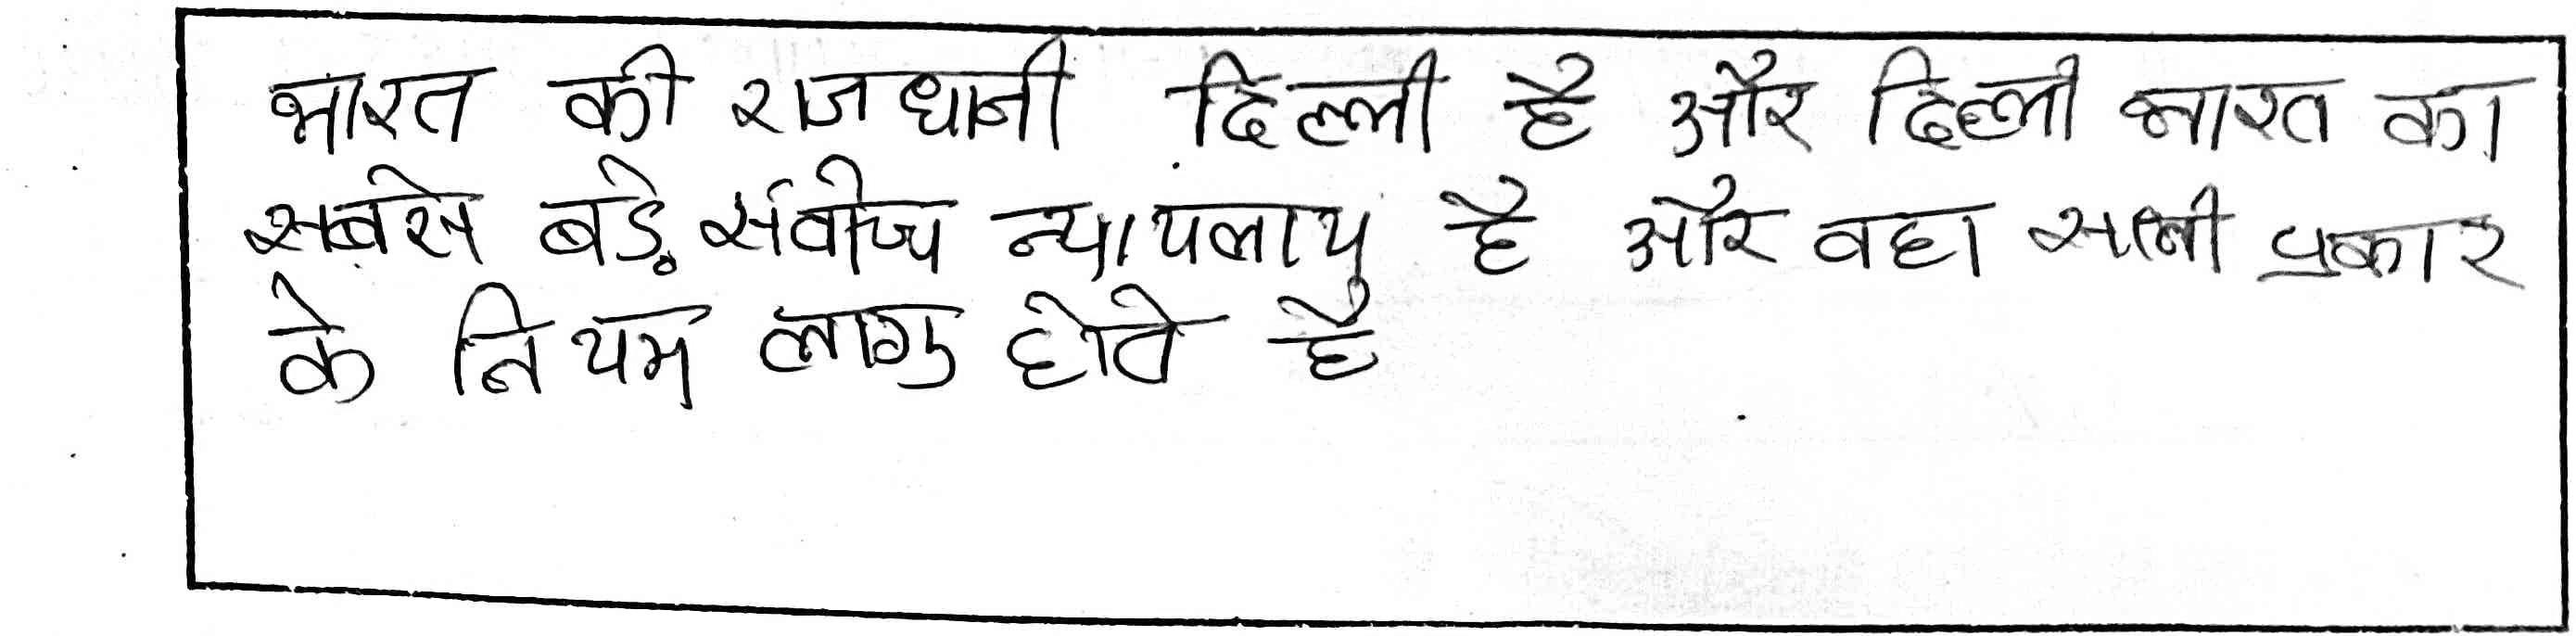 भारत की राजधानी दिल्ली है और दिल्ली भारत का
सबसे बड़े र्सवोच्च न्यायलाय है और वहा सभी प्रकार
के नियम लागु होते है